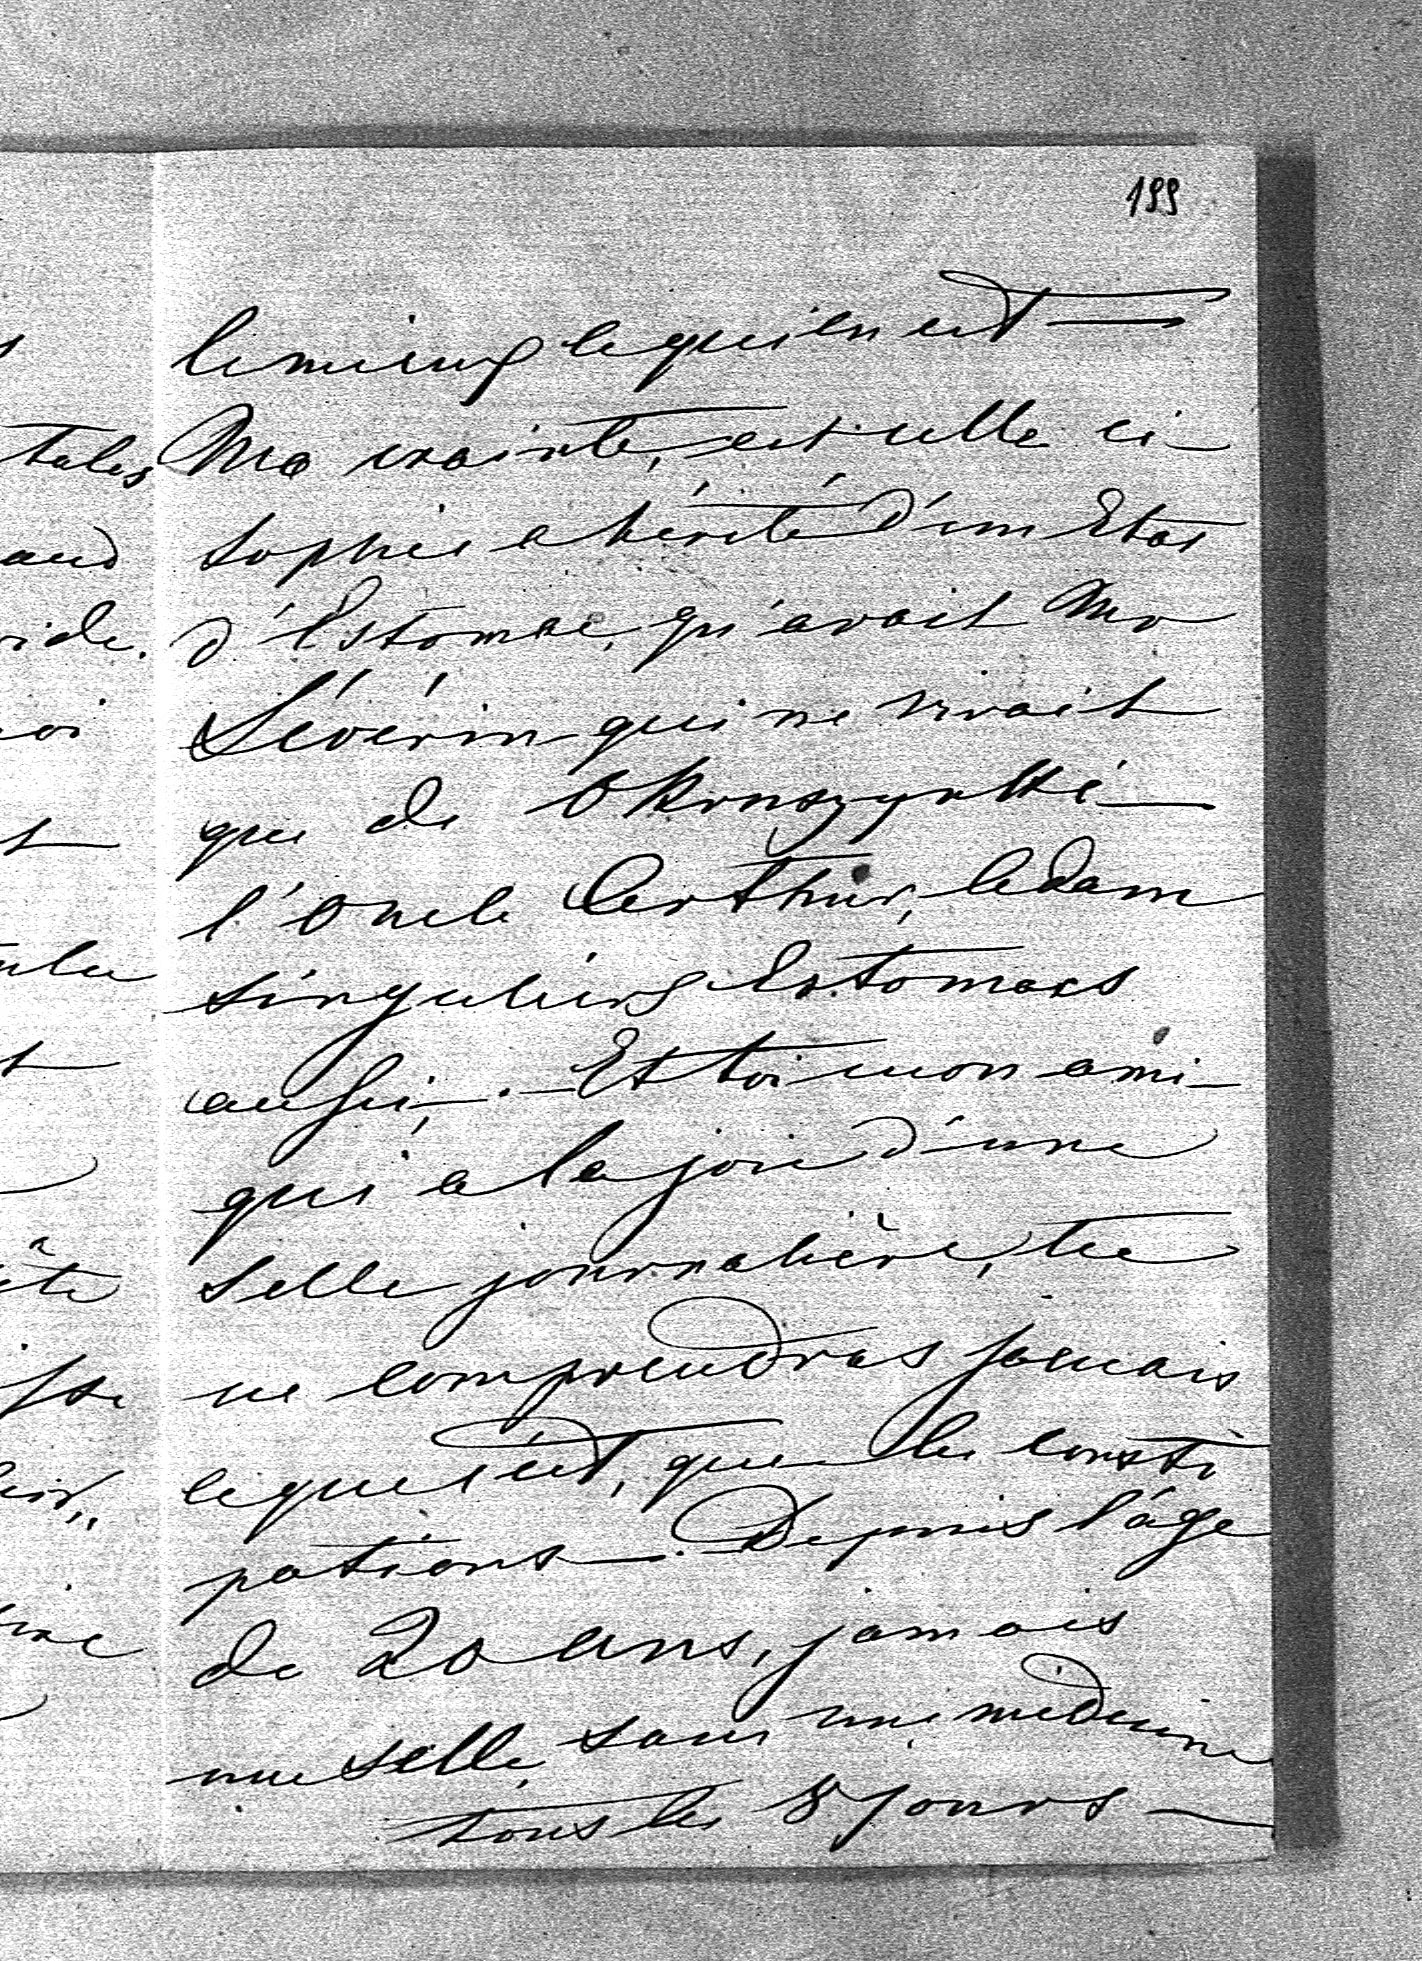 199
le mieux ce qui en est
Ma crainte, est celle ci
Sophie a hérité d'un Etat
d'Estomac, qu'avait Mr
Sévérin qui ne vivait
que de
l'Oncle Arthur, Adam
singuliers Estomacs
aussi. – Et toi mon ami –
qui a la joie d'une
selle journalière, tu
ne comprendras jamais
ce que c'est, que les consti
pations –. Depuis l'âge
de 20 ans, jamais
une selle, sans une médecine
tous les 8 jours –
tales